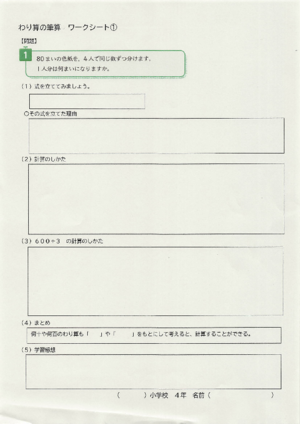 わり算の筆算 ワークシート①
【問題】
1
80まいの色紙を、4人で同じ数ずつ分けます。
1人分は何まいになりますか。
(1)式を立ててみましょう。
○その式を立てた理由
(2)計算のしかた
(3)600÷3 の計算のしかた
(4)まとめ
何十や何百のわり算も「 」や「 」をもとにして考えると、計算することができる。
(5)学習感想
( )小学校 4年 名前( )